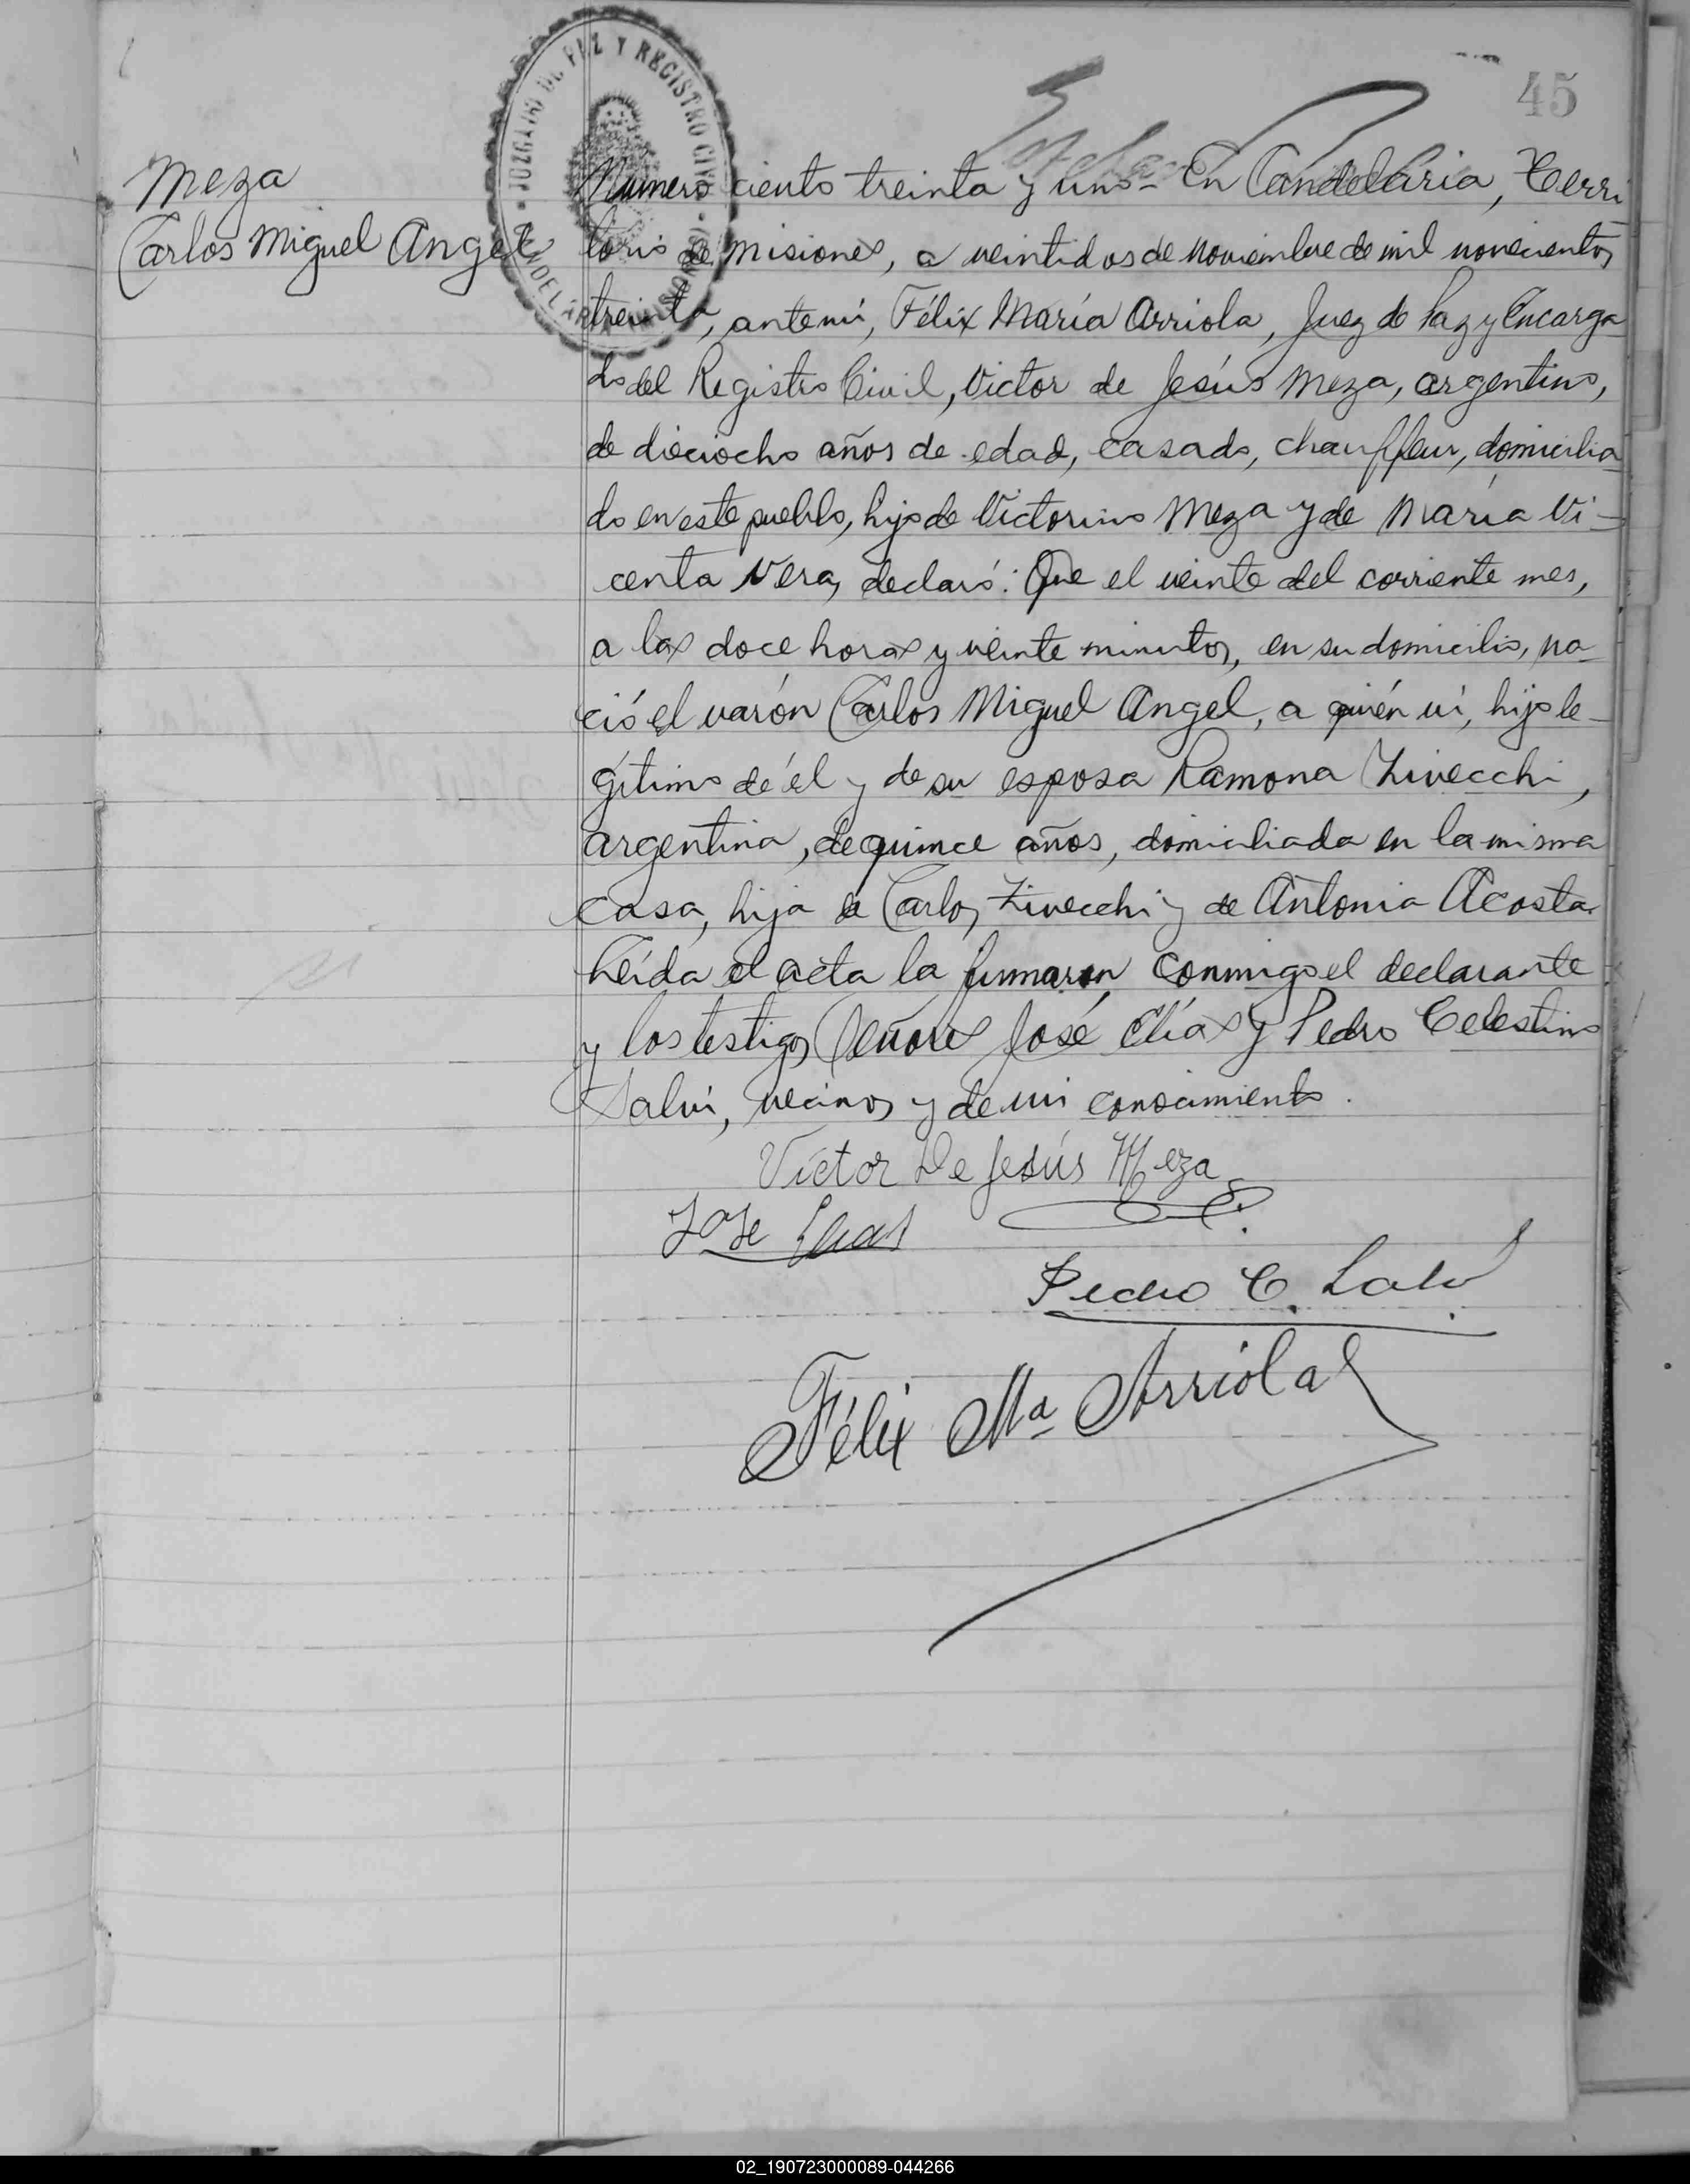 45
JUZGADO DE PAZ Y REGISTRO CIVIL
CANDELARIA MISIONES
Meza
Carlos Miguel Angel
Numero ciento treinta y uno - En Candelaria, Terri
torio de Misiones, a veintidos de Noviembre de mil novecientos
treinta, ante mí, Félix María Arriola, Juez de Paz y Encarga
do del Registro Civil, Victor de Jesús Meza, argentino,
de dieciocho años de edad, casado, chauffeur, domicilia
do en este pueblo, hijo de Victorino Meza y de María Vi-
centa Vera, declaró: Que el veinte del corriente mes,
a las doce horas y veinte minutos, en su domicilio, na-
ció el varón Carlos Miguel Angel, a quién ví, hijo le-
gítimo de él y de su esposa Ramona Zivecchi,
argentina, de quince años, domiciliada en la misma
casa, hija de Carlos Zivecchi y de Antonia Acosta.
Leída el acta la firmaron conmigo el declarante
y los testigos Señores José Elías y Pedro Celestino
Salvi, vecinos y de mi conocimiento.
Víctor De Jesús Meza
Jose Elias
Pedro C. Salvi
Félix Ma Arriola
02_190723000089-044266